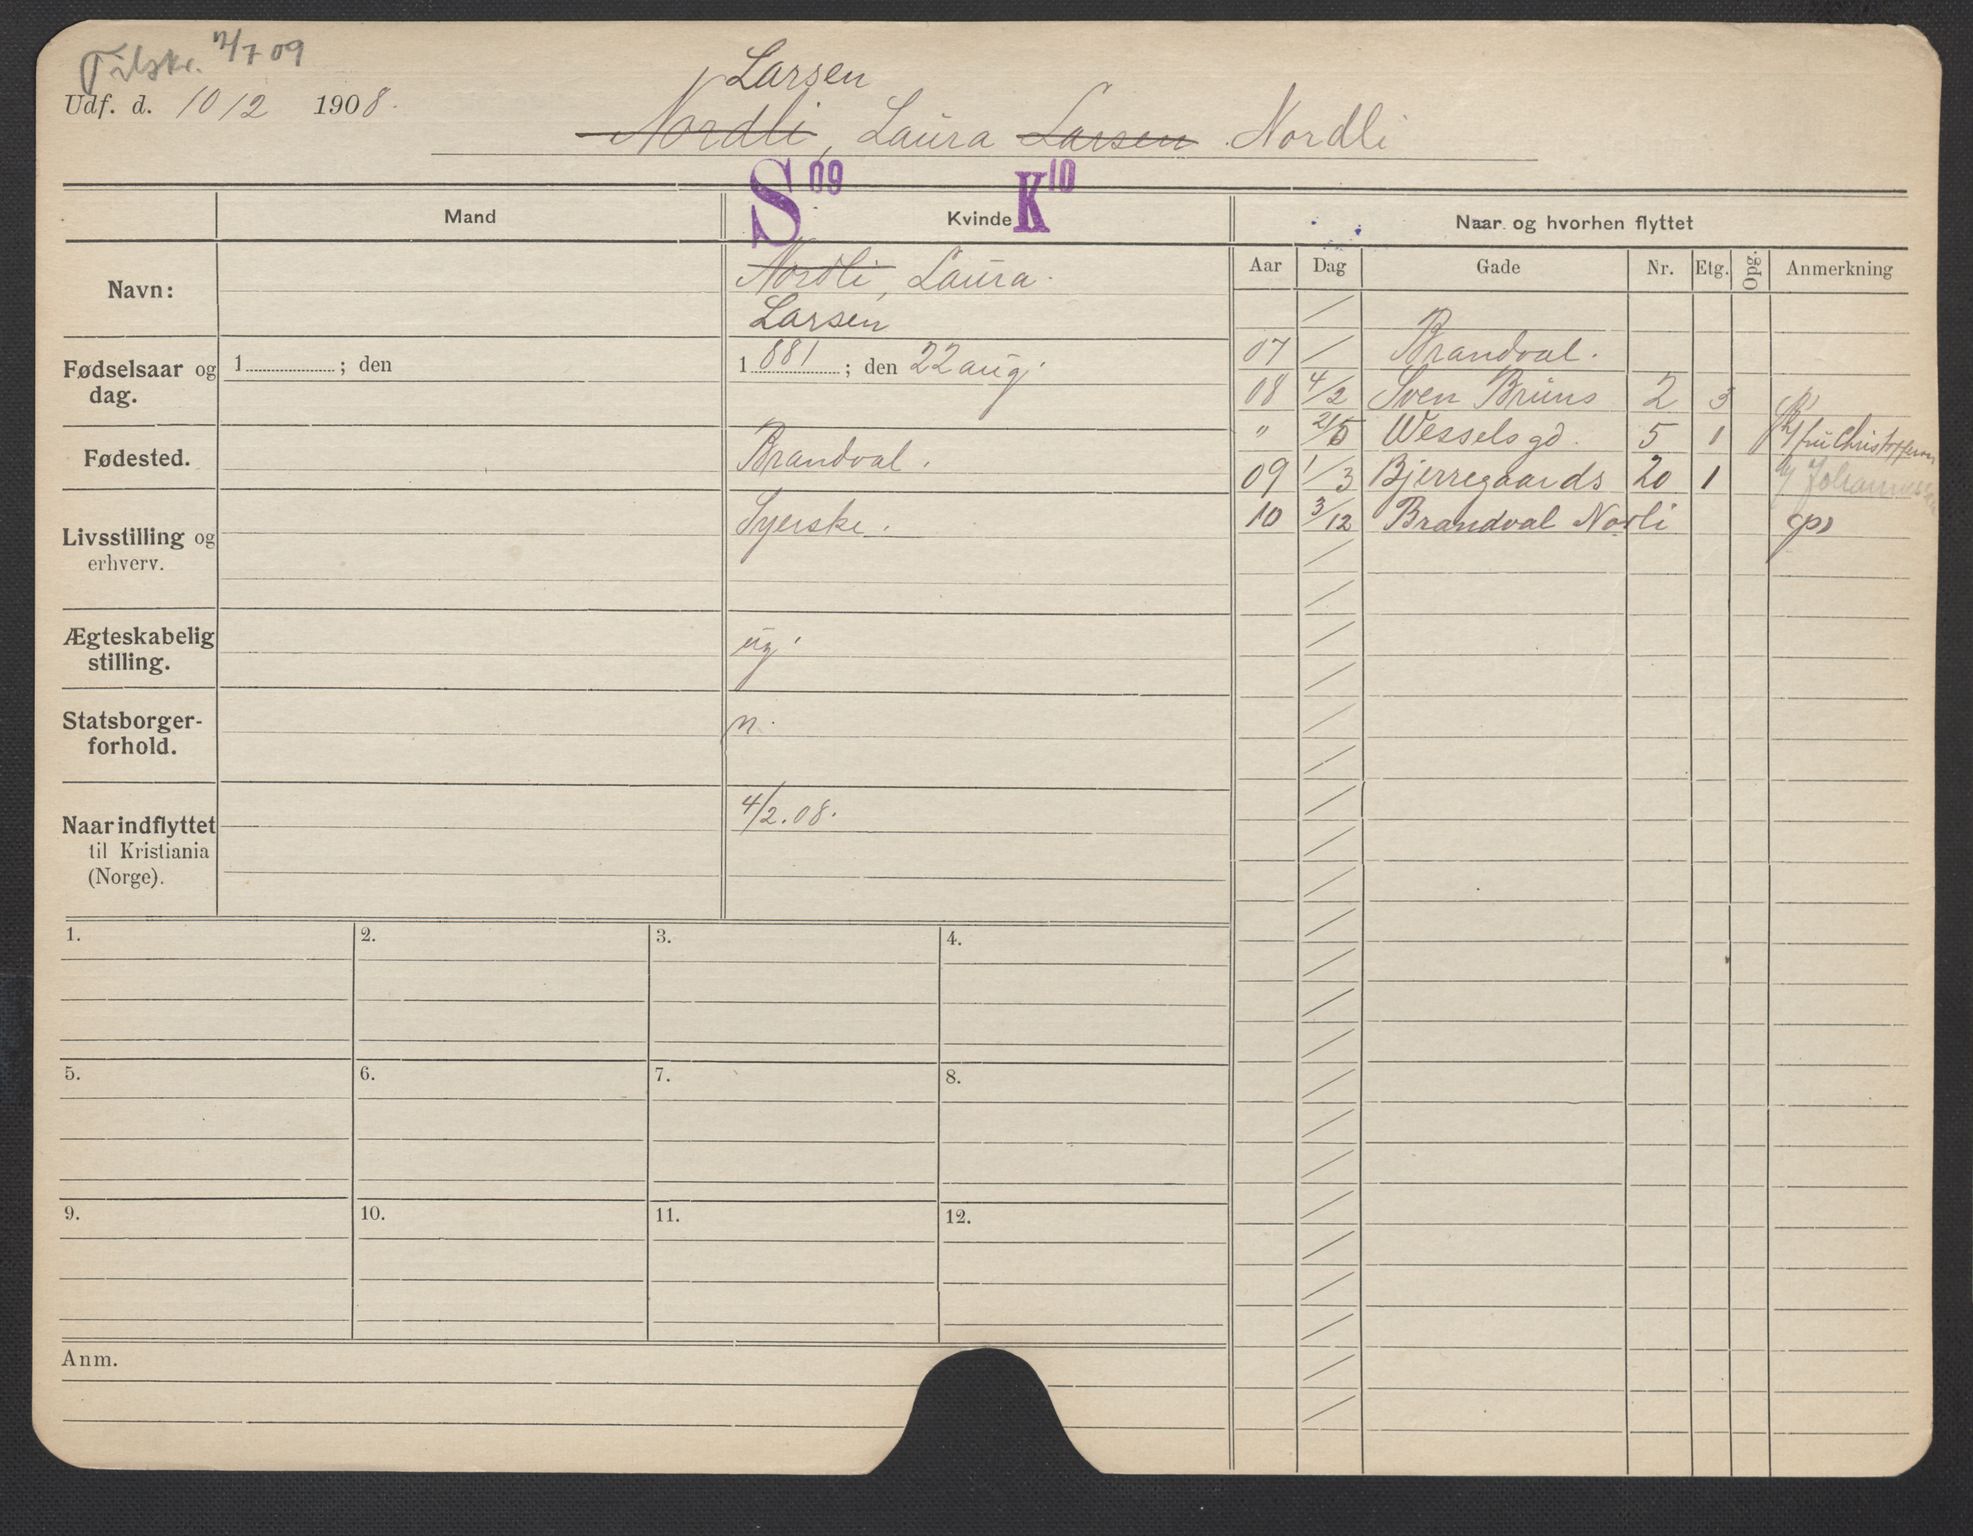 Tilskr. 2/7 09
Udf. d. 10/2 1908.
Larsen
Nordli, Laura Larsen Nordli
S 09 K 10
Mand Kvinde Naar og hvorhen flyttet
Aar Dag Gade Nr. Etg. Opg. Anmerkning
Navn: Nordli, Laura
Larsen
Fødselsaar og dag. 1 ; den 1 881 ; den 22 aug.
Fødested. Brandval.
Livsstilling og erhverv. Syerske.
Ægteskabelig stilling. ug.
Statsborgerforhold. n.
Naar indflyttet til Kristiania (Norge). 4/2.08.
07 / Brandval.
08 4/2 Sven Bruns 2 3
" 2/5 Wesselsgd. 5 1 fru Christoffersen
09 1/3 Bjerregaards 20 1 Johannessen
10 3/12 Brandval Norli (p)
1. 2. 3. 4.
5. 6. 7. 8.
9. 10. 11. 12.
Anm.